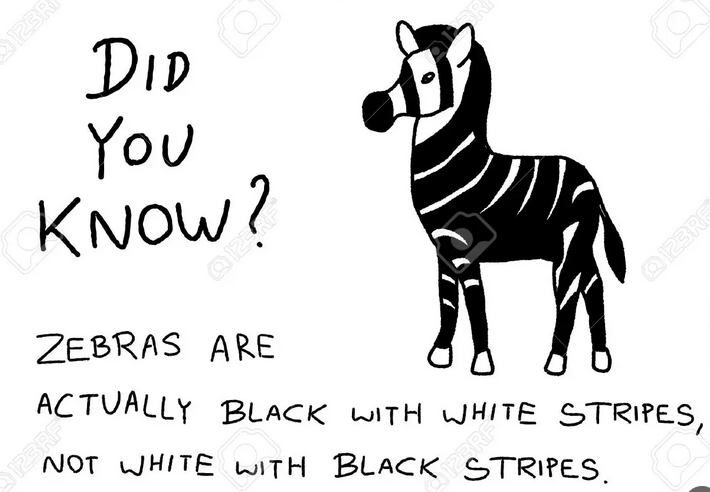 DID
YOU
KNOW?
ZEBRAS ARE
ACTUALLY BLACK WITH WHITE STRIPES,
NOT WHITE WITH BLACK STRIPES.
123RF